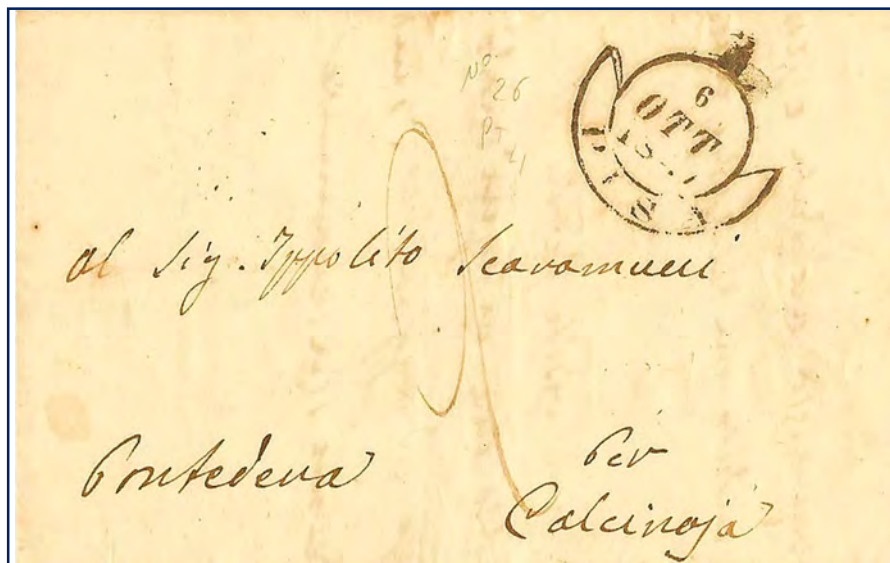 No
26
PT
4
6
OTT
PISA
al Sig. Ippolito Scaramucci
Pontedera
Per
Calcinaja